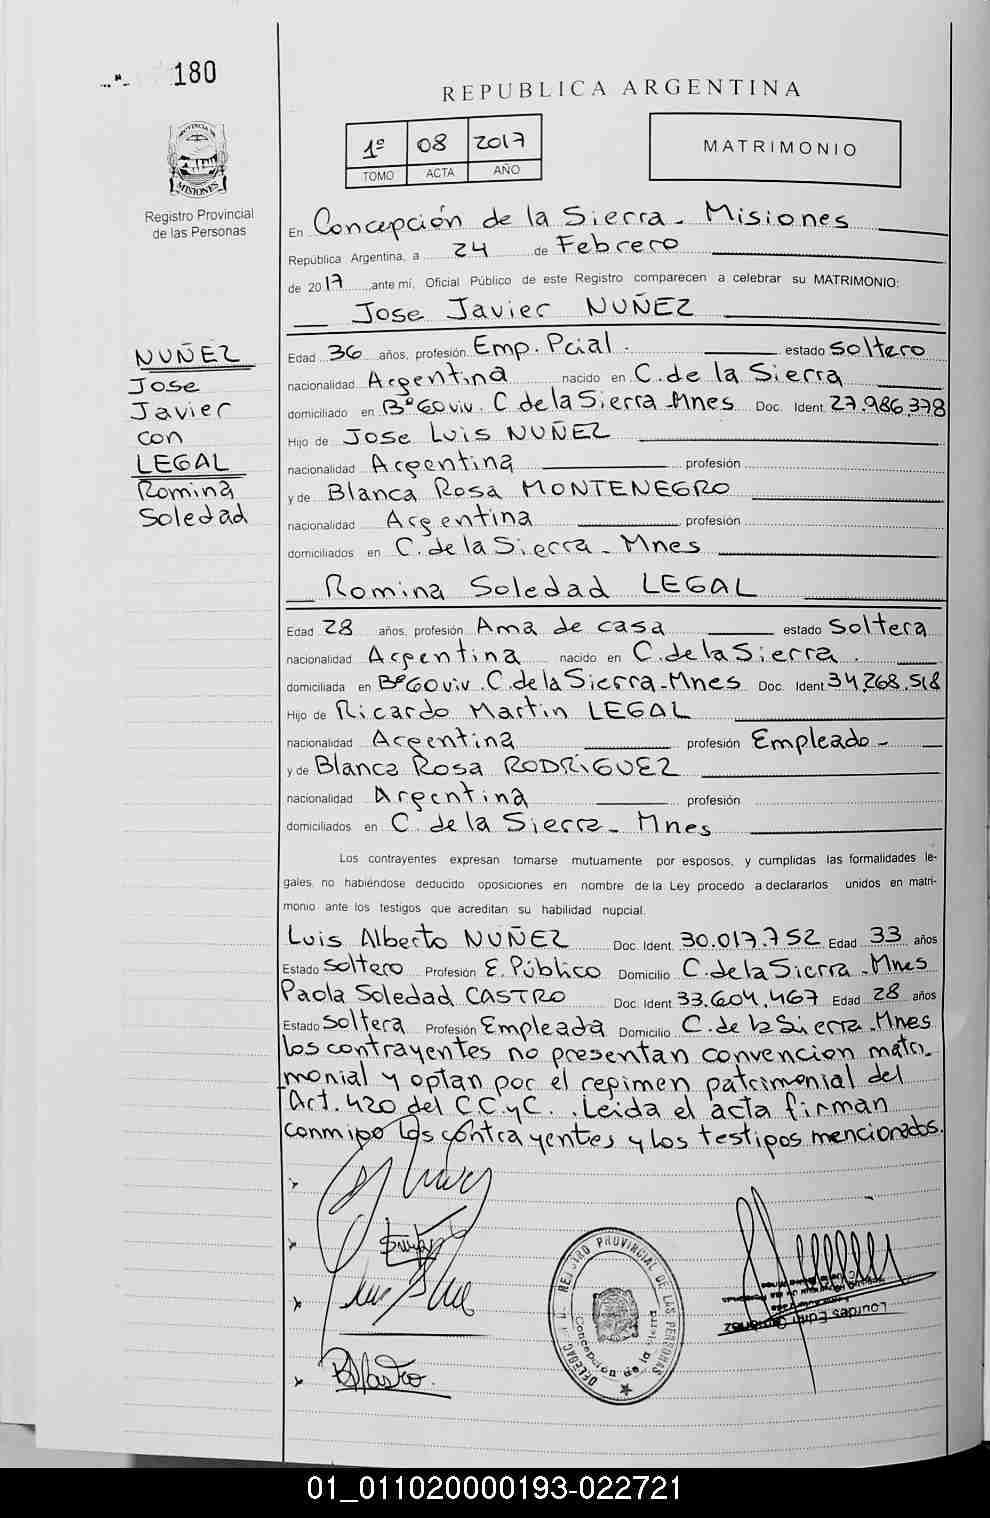 180
REPUBLICA ARGENTINA
1º 08 2017
TOMO ACTA AÑO
MATRIMONIO
PROVINCIA DE
MISIONES
Registro Provincial
de las Personas
En Concepción de la Sierra - Misiones
República Argentina, a 24 de Febrero
de 2017 ante mí, Oficial Público de este Registro comparecen a celebrar su MATRIMONIO:
Jose Javier NUÑEZ
NUÑEZ
Jose
Javier
con
LEGAL
Romina
Soledad
Edad 36 años, profesión Emp. Pcial. estado Soltero
nacionalidad Argentina nacido en C. de la Sierra
domiciliado en Bº 60 viv. C de la Sierra - Mnes Doc. Ident. 27.986.378
Hijo de Jose Luis NUÑEZ
nacionalidad Argentina profesión
y de Blanca Rosa MONTENEGRO
nacionalidad Argentina profesión
domiciliados en C. de la Sierra - Mnes
Romina Soledad LEGAL
Edad 28 años, profesión Ama de casa estado Soltera
nacionalidad Argentina nacido en C. de la Sierra.
domiciliada en Bº 60 viv. C. de la Sierra - Mnes Doc. Ident. 34.268.518
Hijo de Ricardo Martin LEGAL
nacionalidad Argentina profesión Empleado -
y de Blanca Rosa RODRIGUEZ
nacionalidad Argentina profesión
domiciliados en C. de la Sierra - Mnes
Los contrayentes expresan tomarse mutuamente por esposos, y cumplidas las formalidades le-
gales, no habiéndose deducido oposiciones en nombre de la Ley procedo a declararlos unidos en matri-
monio ante los testigos que acreditan su habilidad nupcial.
Luis Alberto NUÑEZ Doc. Ident. 30.017.752 Edad 33 años
Estado Soltero Profesión E. Público Domicilio C. de la Sierra - Mnes
Paola Soledad CASTRO Doc. Ident. 33.604.467 Edad 28 años
Estado Soltera Profesión Empleada Domicilio C. de la Sierra - Mnes
los contrayentes no presentan convencion matri-
monial y optan por el regimen patrimonial del
Art. 420 del C.C.yC. . Leida el acta firman
conmigo los contrayentes y los testigos mencionados.
REGISTRO PROVINCIAL DE LAS PERSONAS
Concepción de la Sierra
Lourdes Edith
01_011020000193-022721